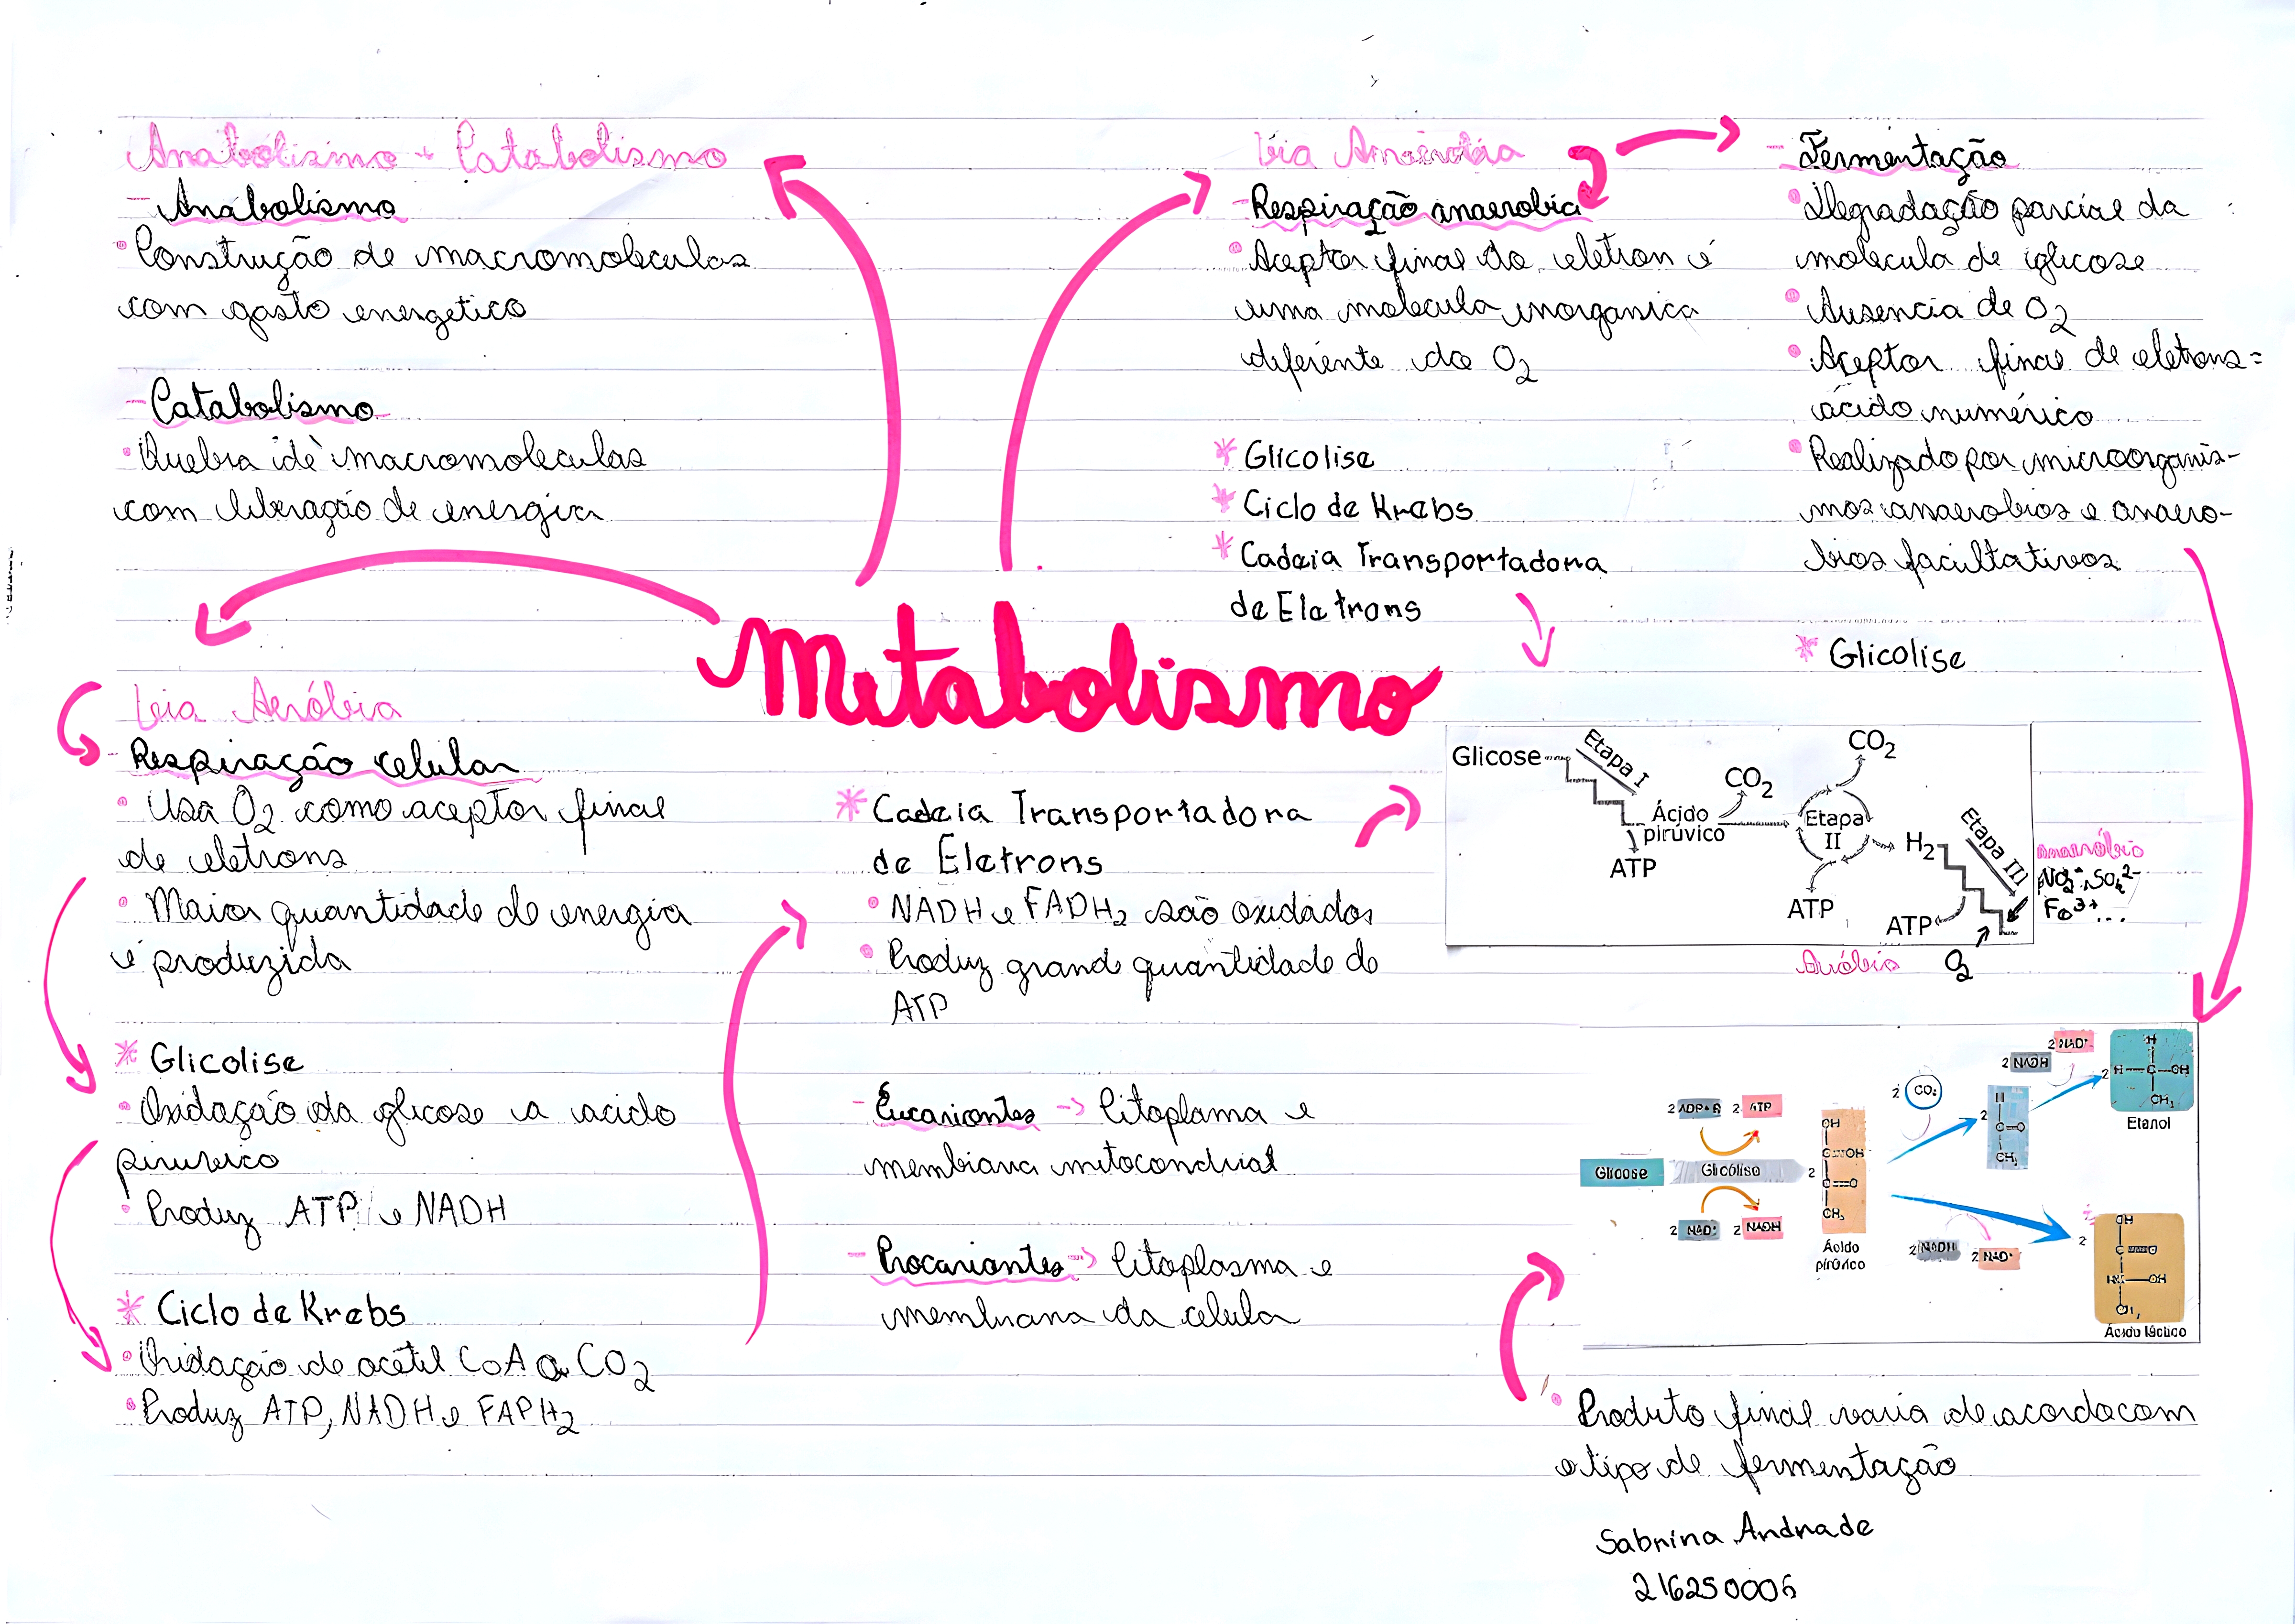 Anabolismo + Catabolismo
- Anabolismo
• Construção de macromoleculas
com gasto energetico
- Catabolismo
• Quebra de macromoleculas
com liberação de energia
Via Anaeróbia
- Respiração anaerobia
• Aceptor final do eletron é
uma molecula inorganica
diferente do O2
* Glicolise
* Ciclo de Krebs
* Cadeia Transportadora
de Eletrons
- Fermentação
• Degradação parcial da
molecula de glicose
• Ausencia de O2
• Aceptor final de eletrons =
ácido numérico
• Realizado por microorganis-
mos anaerobios e anaero-
bios facultativos
* Glicolise
Metabolismo
Via Aeróbia
- Respiração celular
• Usa O2 como aceptor final
de eletrons
• Maior quantidade de energia
é produzida
* Glicolise
• Oxidação da glicose a acido
piruvico
• Produz ATP e NADH
* Ciclo de Krebs
• Oxidação de acetil CoA a CO2
• Produz ATP, NADH e FAPH2
* Cadeia Transportadora
de Eletrons
• NADH e FADH2 são oxidados
• Produz grande quantidade de
ATP
- Eucariontes -> Citoplama e
membrana mitocondrial
- Procariontes -> Citoplasma e
membrana da celula
Glicose
Etapa I
Ácido
pirúvico
ATP
CO2
Etapa
II
CO2
ATP
H2
Etapa III
ATP
Aeróbia
O2
anaeróbio
NO3-, SO4 2-
Fe3+ ...
Glicose
2 ADP+Pi 2 ATP
Glicólise
2 NAD+ 2 NADH
2
OH
C=OH
C=O
CH3
Ácido
pirúvico
2 CO2
2
H
C=O
CH3
2 NADH
2 NAD+
2
H
H—C—OH
CH3
Etanol
2 NADH 2 NAD+
2
OH
C=O
HC—OH
CH3
Ácido láctico
• Produto final varia de acordo com
o tipo de fermentação
Sabrina Andrade
216250006